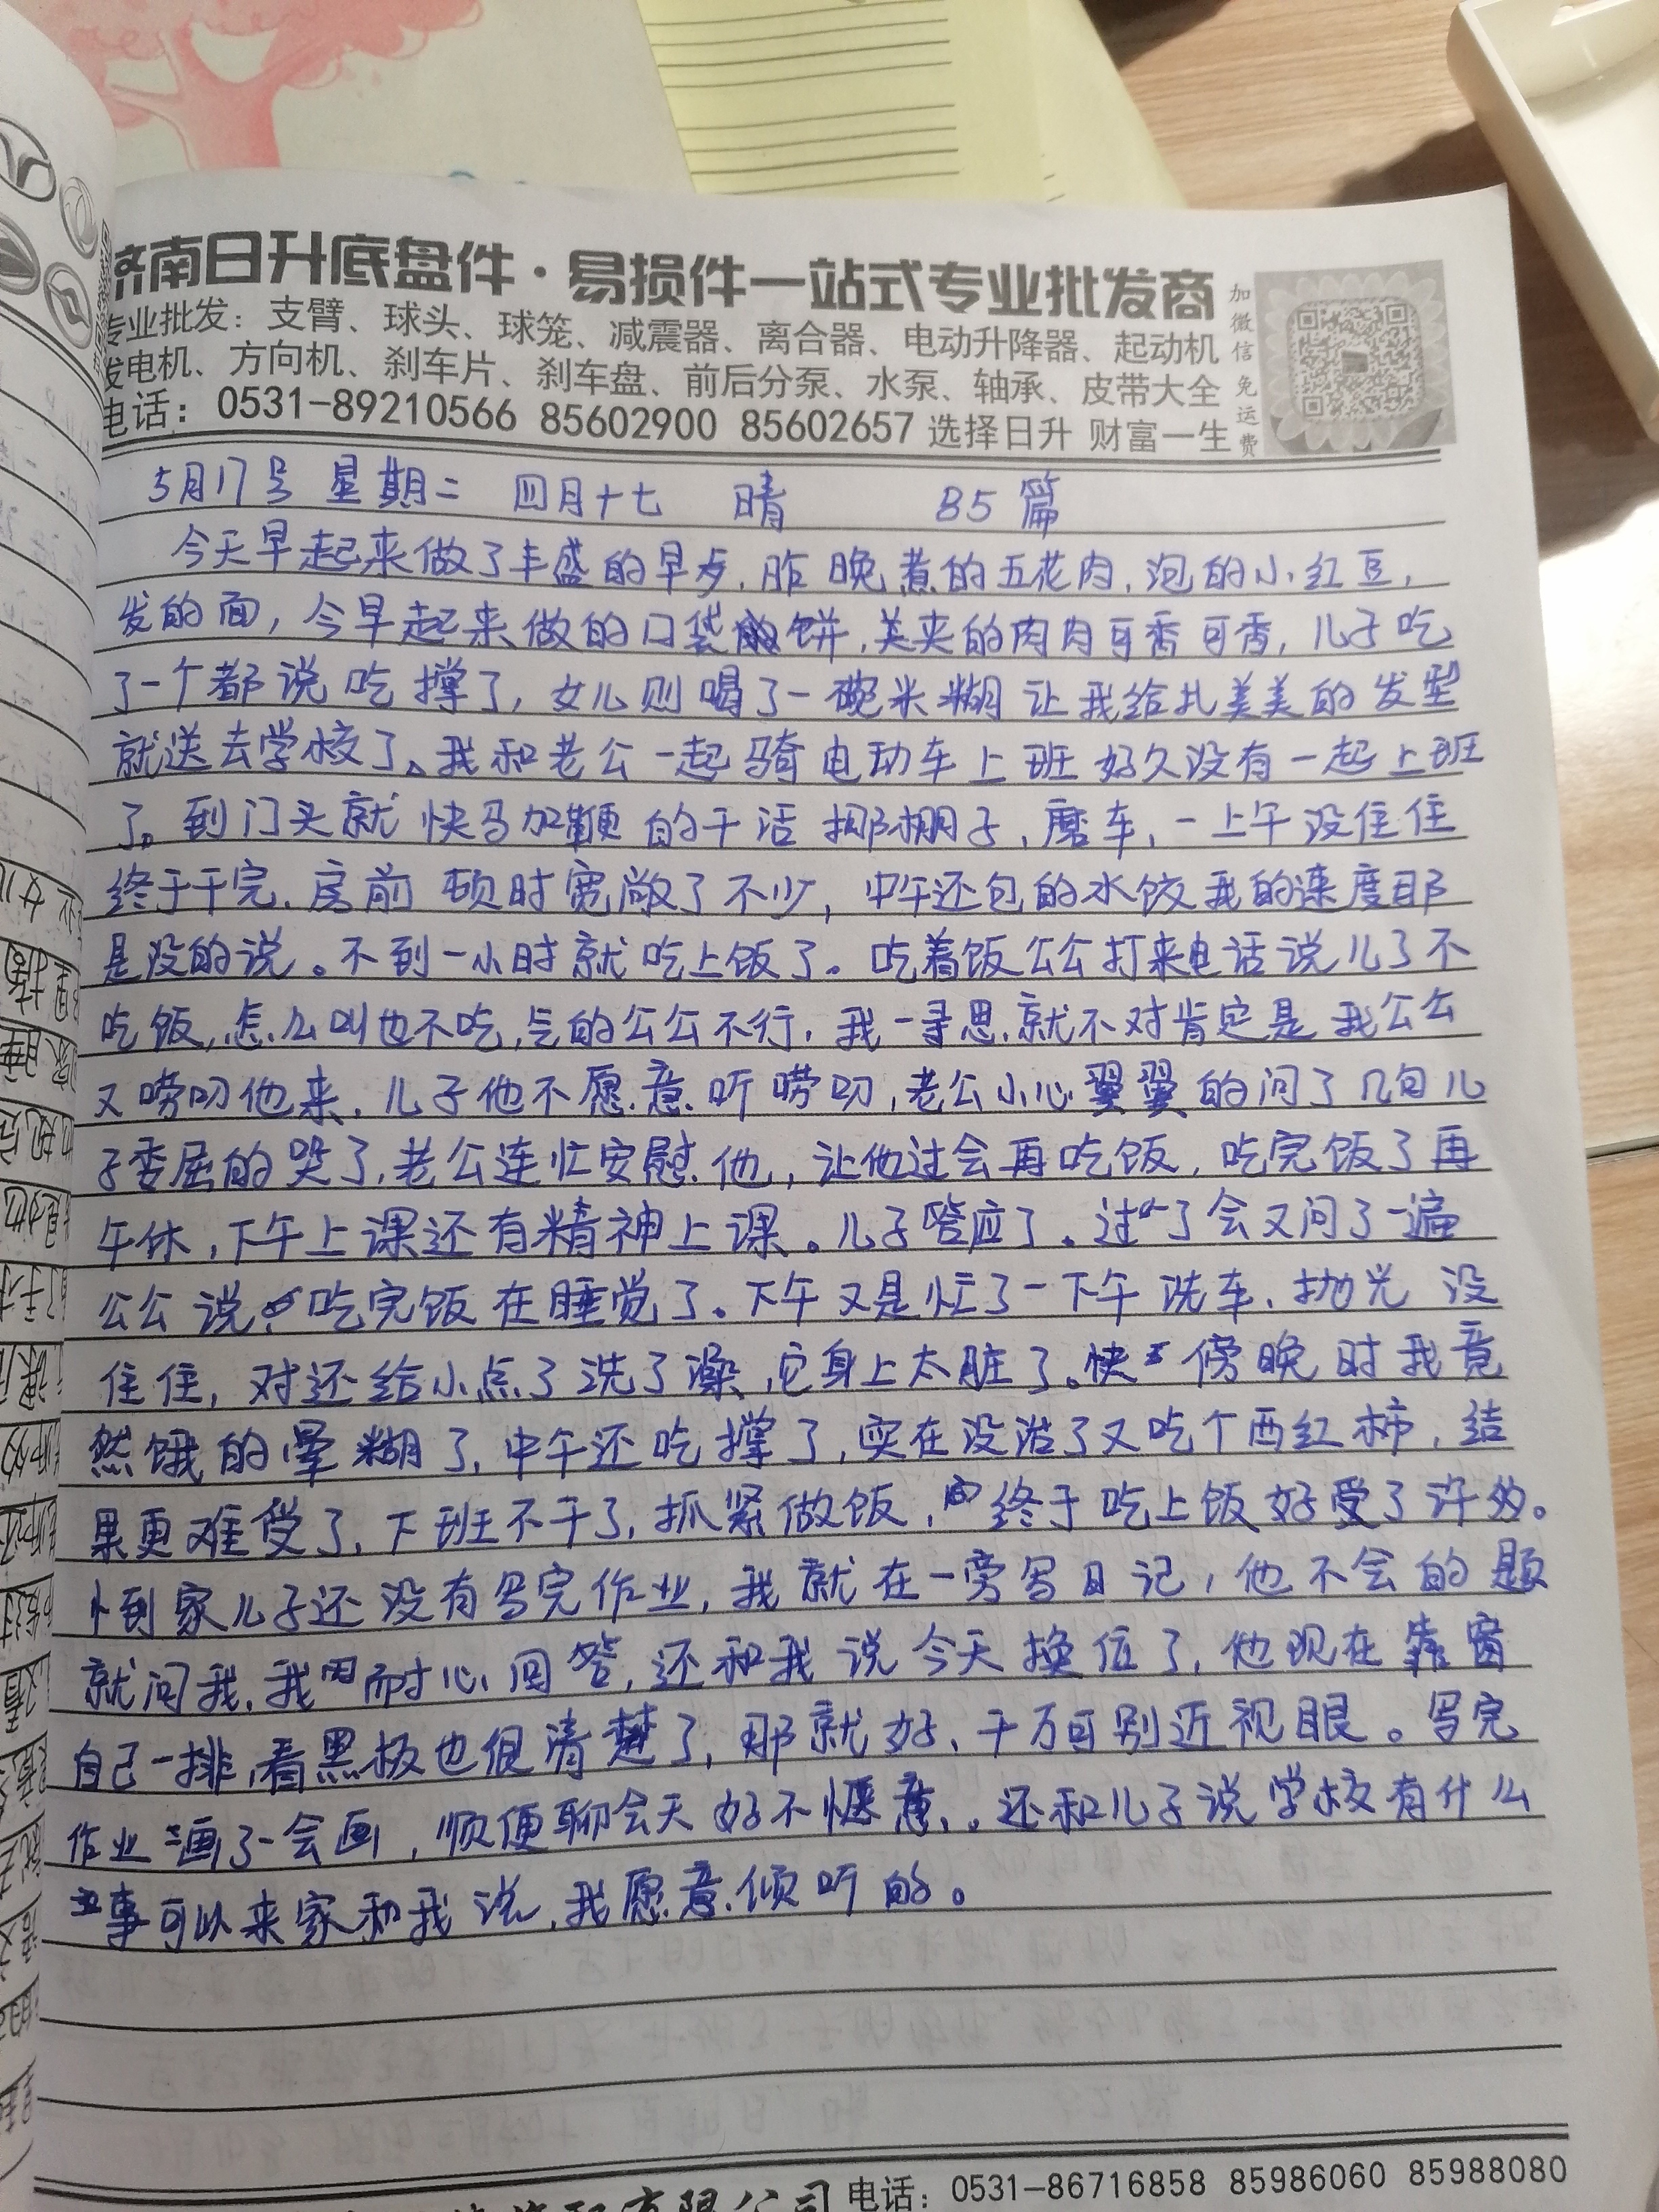 济南日升底盘件·易损件一站式专业批发商
专业批发：支臂、球头、球笼、减震器、离合器、电动升降器、起动机
发电机、方向机、刹车片、刹车盘、前后分泵、水泵、轴承、皮带大全
电话：0531-89210566 85602900 85602657 选择日升 财富一生
加微信免运费
5月17号 星期二 四月十七 晴 85篇
今天早起来做了丰盛的早歺，昨晚煮的五花肉，泡的小红豆，
发的面，今早起来做的口袋饼，美夹的肉肉可香可香，儿子吃
了一个都说吃撑了，女儿则喝了一碗米糊让我给扎美美的发型
就送去学校了。我和老公一起骑电动车上班好久没有一起上班
了。到门头就快马加鞭的干活挪棚子，磨车，一上午没住住
终于干完．房前顿时宽敞了不少，中午还包的水饺我的速度那
是没的说。不到一小时就吃上饭了。吃着饭公公打来电话说儿子不
吃饭，怎么叫也不吃，气的公公不行，我一寻思．就不对肯定是我公公
又唠叨他来．儿子他不愿意听唠叨，老公小心翼翼的问了几句儿
子委屈的哭了，老公连忙安慰他，让他过会再吃饭，吃完饭了再
午休，下午上课还有精神上课。儿子答应了。过了会又问了一遍
公公说吃完饭在睡觉了。下午又是忙了一下午洗车、抛光 没
住住，对还给小点了洗了澡，它身上太脏了。快傍晚时我竟
然饿的晕糊了，中午还吃撑了，实在没治了又吃个西红柿，结
果更难受了，下班不干了，抓紧做饭，终于吃上饭好受了许多。
到家儿子还没有写完作业，我就在一旁写日记，他不会的题
就问我，我耐心回答，还和我说今天换位了，他现在靠窗
自己一排，看黑板也很清楚了，那就好、千万可别近视眼。写完
作业画了一会画，顺便聊会天好不惬意。还和儿子说学校有什么
事可以来家和我说，我愿意倾听的。
有限公司 电话：0531-86716858 85986060 85988080